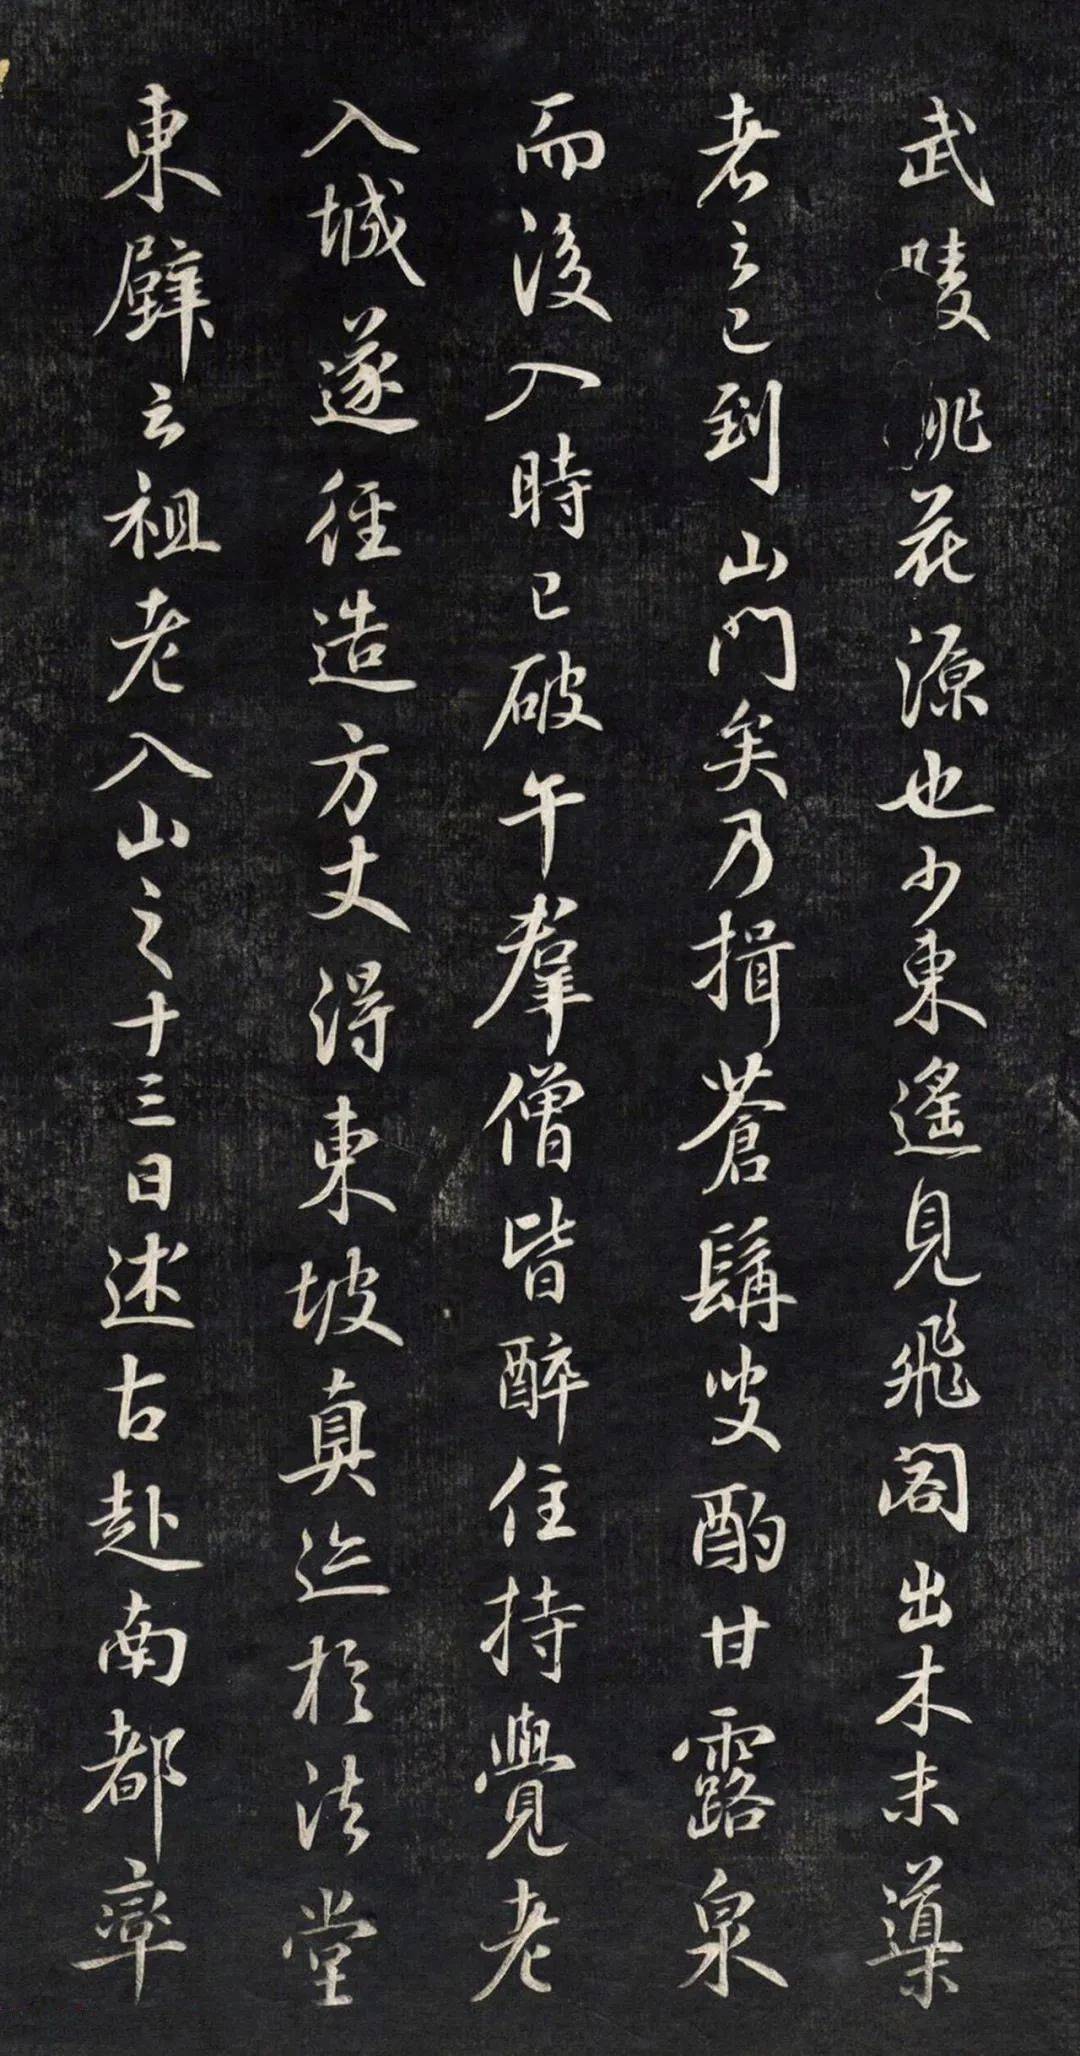 武陵桃花源也少東遙見飛閣出木末導
者云已到山門矣乃揖蒼髯叟酌甘露泉
而後入時已破午群僧皆醉住持覺老
入城遂徑造方丈得東坡真迹於法堂
東壁云祖老入山之十三日述古赴南都率